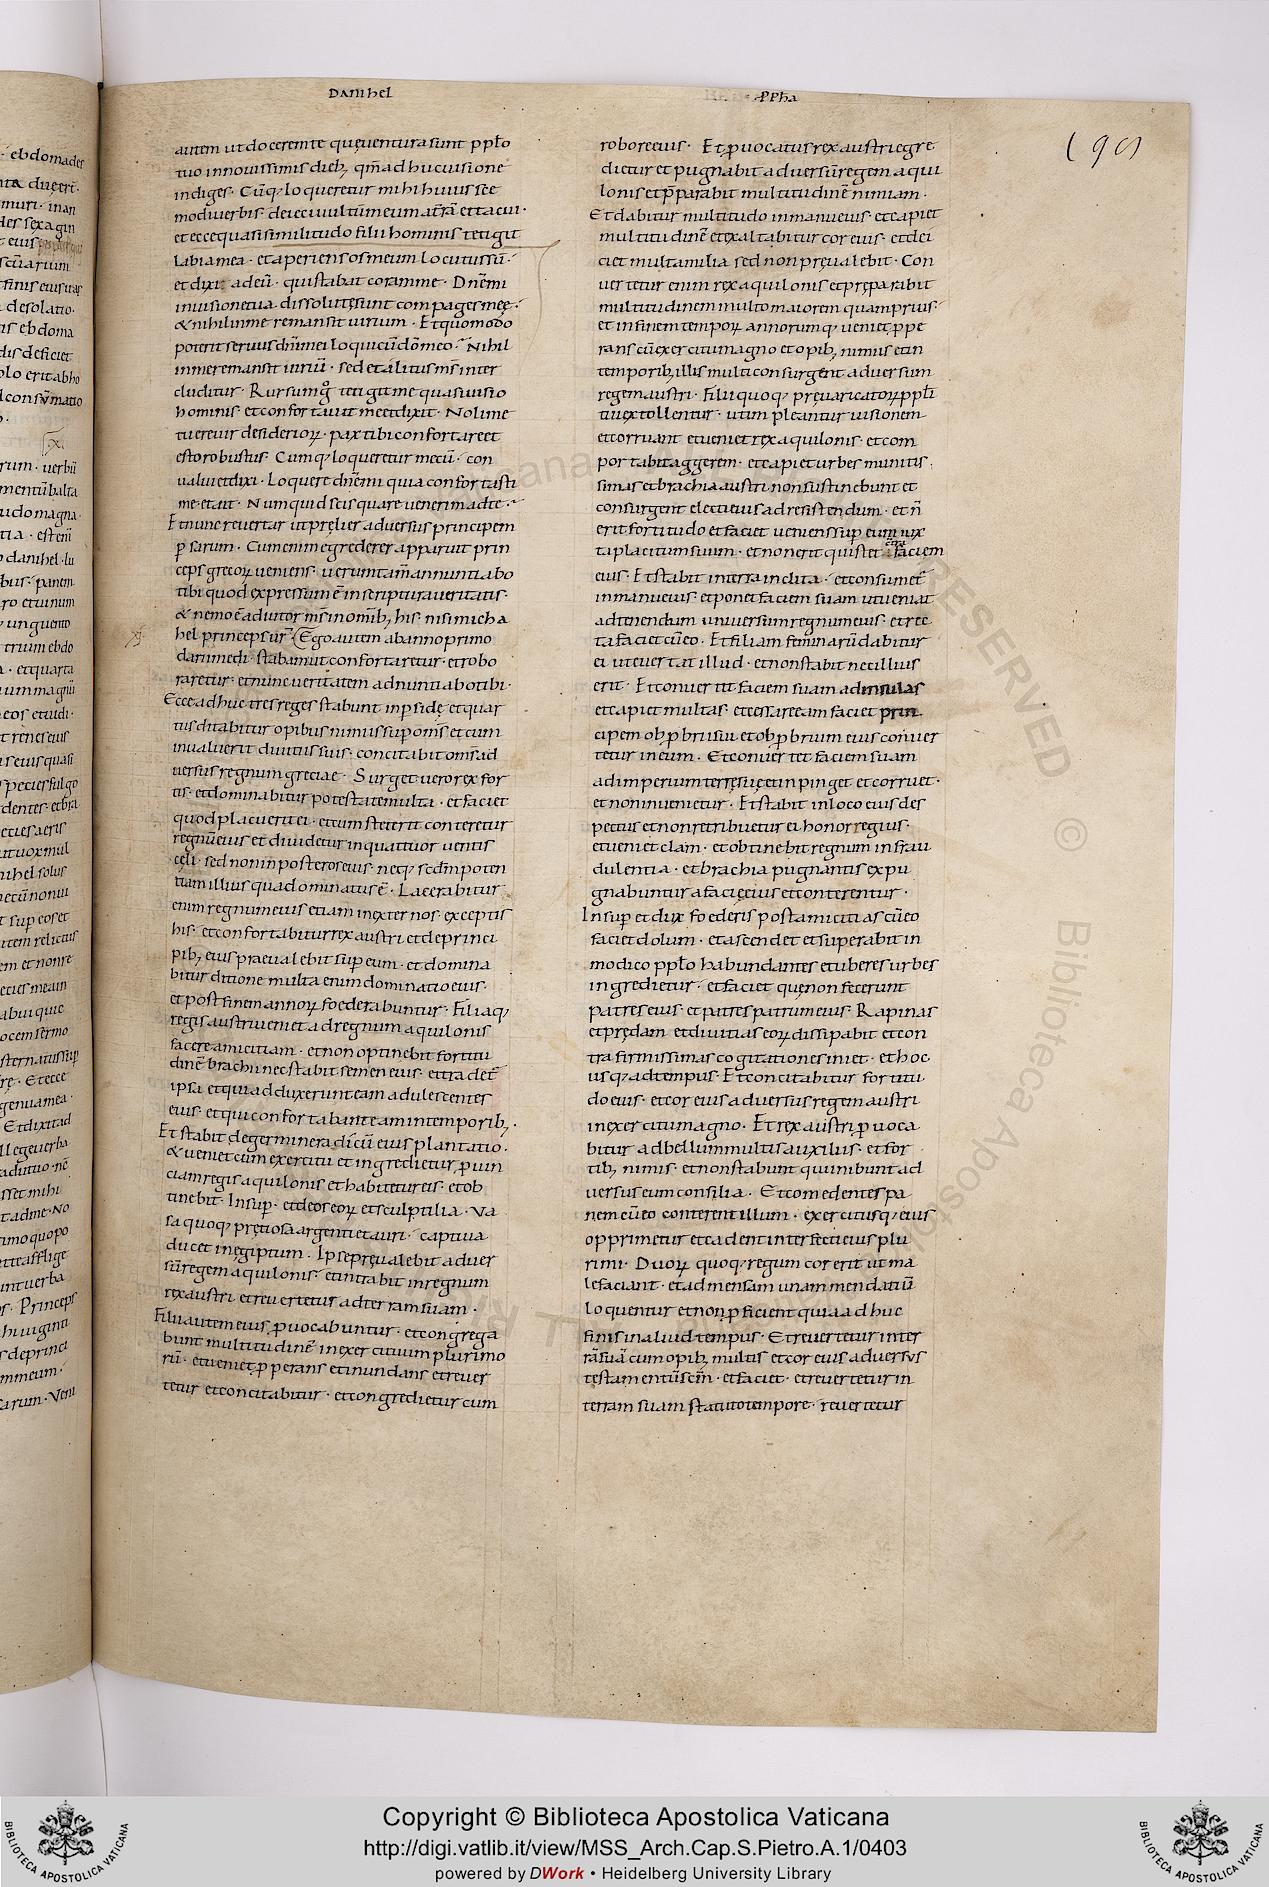 DANIhEL
PPhA
190
autem ut docerem te quę ventura sunt ppło
tuo in novissimis dieb; qm̄ adhuc visio ne
in dies. Cūq; loqueretur mihi huiusce
modi verbis. deieci vultū meum at̄rā et tacui.
et ecce quasi similitudo filii hominis tetigit
labia mea. et aperiens os meum locutus sū.
et dixi adeū. qui stabat coram me. Dn̄e mi
in visione tua dissolutę sunt compages meę.
& nihil in me remansit virium. Et quomodo
poterit servus dn̄i mei loqui cū dn̄o meo. Nihil
in me remansit viriū. sed et alitus ms̄ inter
cluditur. Rursum g̊ tetigit me quasi visio
hominis. et confortavit me et dixit. Noli me
tuere vir desideriorꝝ. pax tibi confortare et
esto robustus. Cumq; loqueretur mecū. con
valui et dixi. Loquere dn̄e mi quia confortasti
me. et ait. Numquid scis quare venerim ad te.
Et nunc revertar ut pręlier adversus principem
p̱sarum. Cum enim egrederer apparuit prin
ceps grecorꝝ veniens. verumtam̄ annuntiabo
tibi quod expressum ē in scriptura veritatis.
& nemo ē adiutor ms̄ in om̄ib; his. nisi micha
hel princeps vr̄. Ego autem ab anno primo
darii medi. stabam ut confortaretur. et robo
raretur. et nunc veritatem adnuntiabo tibi.
Ecce adhuc tres reges stabunt in p̱side. et quar
tus ditabitur opibus nimiis sup om̄s et cum
invaluerit divitiis suis. concitabit om̄s ad
versus regnum greciae. Surget vero rex for
tis. et dominabitur potestate multa. et faciet
quod placuerit ei. et cum steterit conteretur
regnū eius et dividetur in quattuor ventis
cęli. sed non in posteros eius. neq; scdm̄ poten
tiam illius qua dominatus ē. Lacerabitur
enim regnum eius etiam in externos. exceptis
his. et confortabitur rex austri et de princi
pib; eius praevalebit sup eum. et domina
bitur ditione multa enim dominatio eius.
et post finem annorꝝ foederabuntur. Filiaq;
regis austri veniet ad regnum aquilonis
facere amicitiam. et non optinebit fortitu
dinē brachii nec stabit semen eius. et tradet̄
ipsa et qui adduxerunt eam adulescentes
eius. et qui confortabant eam in temporib;.
Et stabit de germine radicū eius plantatio.
& veniet cum exercitu et ingredietur p̱vin
ciam regis aquilonis et habitetur eis. et ob
tinebit. Insup. et deos eorꝝ et sculptilia. Va
sa quoq; pretiosa argenti et auri. captiva
ducet in ęgiptum. Ipse pręvalebit adver
sū regem aquilonis. et intrabit in regnum
rex austri et revertetur ad terram suam.
Filii autem eius p̱vocabuntur. et congrega
bunt multitudinē in exercituum plurimo
rū. et veniet p̱perans et inundans et rever
tetur et concitabitur. et congredietur cum
robore eius. Et p̱vocatus rex austri egre
dietur et pugnabit adversū regem aqui
lonis et p̄parabit multitudinē nimiam.
Et dabitur multitudo in manu eius. et capiet
multitudinē et exaltabitur cor eius. et dei
ciet multa milia sed non pręvalebit. Con
vertetur enim rex aquilonis et pręparabit
multitudinem multo maiorem quam prius.
et in finem temporꝝ annorumq; veniet p̱pe
rans cū exercitu magno et opib; nimiis et in
temporib; illis multi consurgent adversum
regem austri. Filii quoq; pręvaricatorꝝ ppłi
tui extollentur. ut impleantur visionem
et corruant et veniet rex aquilonis. et com
portabit aggerem. et capiet urbes munitis
simas et brachia austri non sustinebunt et
consurgent electi eius ad resistendum. et n̄
erit fortitudo et faciet veniens sup eum iux
ta placitum suum. et non erit qui stet c̄tra faciem
eius. Et stabit in terra inclita. et consumet̄
in manu eius. et ponet faciem suam ut veniat
ad tenendum universum regnum eius. et rec
ta faciet cū eo. Et filiam feminarū dabit ur
ei ut evertat illud. et non stabit nec illius
erit. Et convertit faciem suam ad insulas
et capiet multas. et cessare eam faciet prin
cipem ob p̱brii sui et ob p̱brium eius conver
tetur in eum. Et convertet faciem suam
ad imperium terrę suę et inpinget et corruet.
et non invenietur. Et stabit in loco eius des
pectus et non retribuetur ei honor regius.
et veniet clam. et obtinebit regnum in frau
dulentia. et brachia pugnantis expu
gnabuntur a facię eius et conterentur.
Insup et dux foederis post amicitias cū eo
faciet dolum. et ascendet et superabit in
modico ppło habundantes et uberes urbes
ingredietur. et faciet quę non fecerunt
patres eius. et patres patrum eius. Rapinas
et prędam et divitias eorꝝ dissipabit et con
tra firmissimas cogitationes iniet. et hoc
usq; ad tempus. Et concitabitur fortitu
do eius. et cor eius adversus regem austri
in exercitu magno. Et rex austri p̱voca
bitur ad bellum multis auxiliis. et for
tib; nimis. et non stabunt qui inibunt ad
versus eum consilia. Et comedentes pa
nem cū eo conterent illum. exercitusq; eius
opprimetur et cadent interfecti eius plu
rimi. Duorꝝ quoq; regum cor erit ut ma
le faciant. et ad mensam unam mendatiū
loquentur et non p̱ficient quia adhuc
finis in aliud tempus. Et revertetur in ter
rā suā cum opib; multis et cor eius adversus
testamentū sc̄m. et faciet. et revertetur in
terram suam statuto tempore. revertetur
Copyright © Biblioteca Apostolica Vaticana
http://digi.vatlib.it/view/MSS_Arch.Cap.S.Pietro.A.1/0403
powered by DWork • Heidelberg University Library